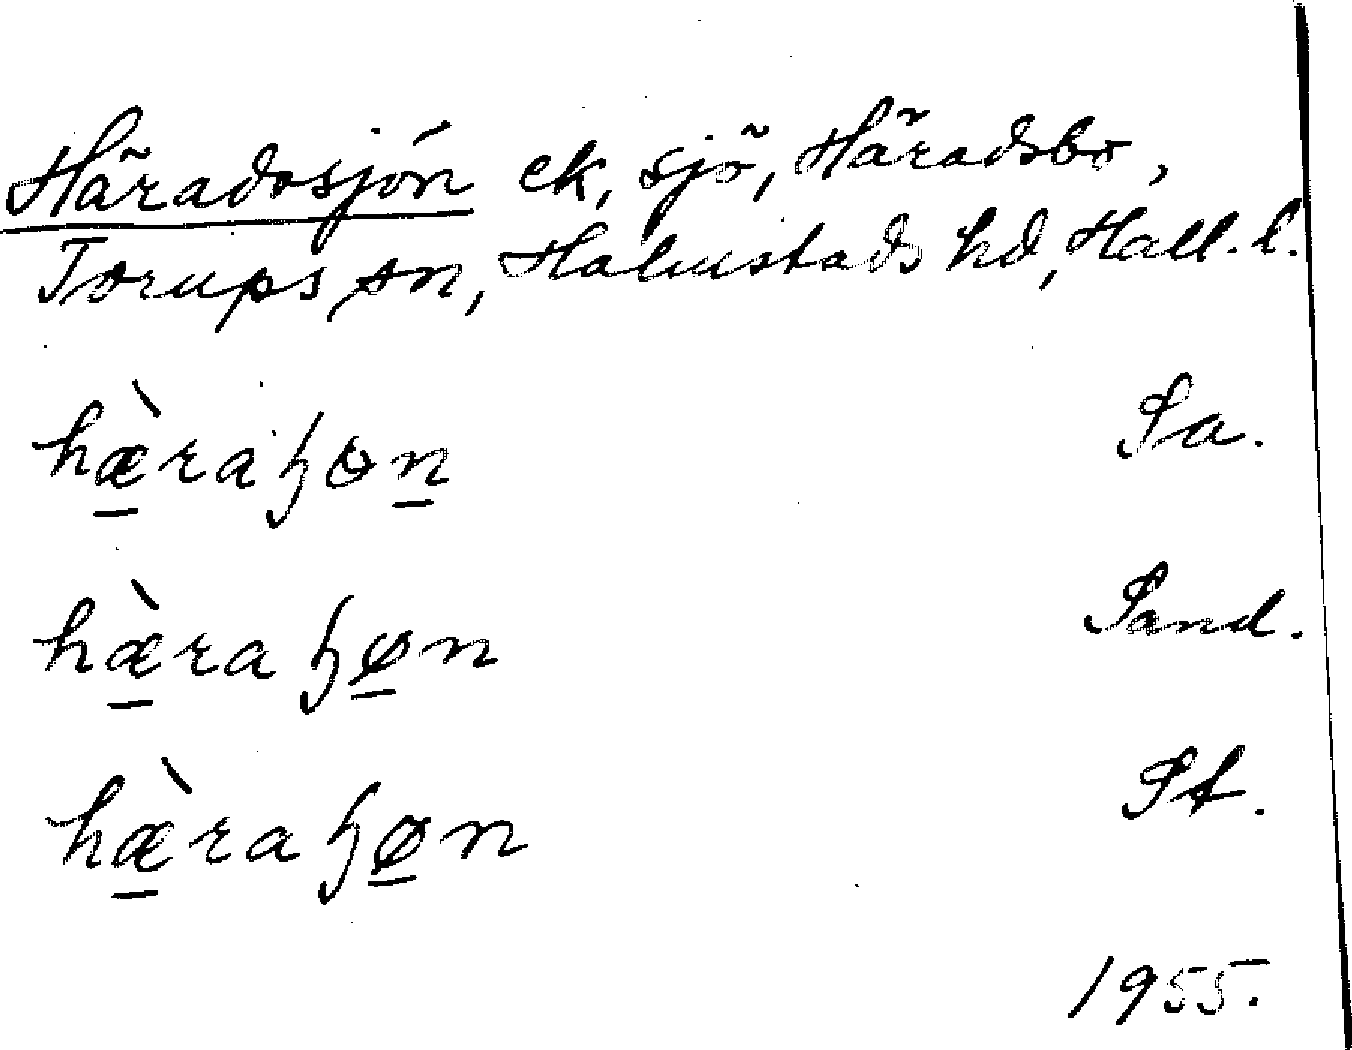 Häradssjön ek, sjö, Häradsbo,
Torups sn, Halmstads hd, Hall. l.
hæ̀raɧɵn Sa.
hæ̀raɧøn Sand.
hæ̀raɧøn St.
1955.